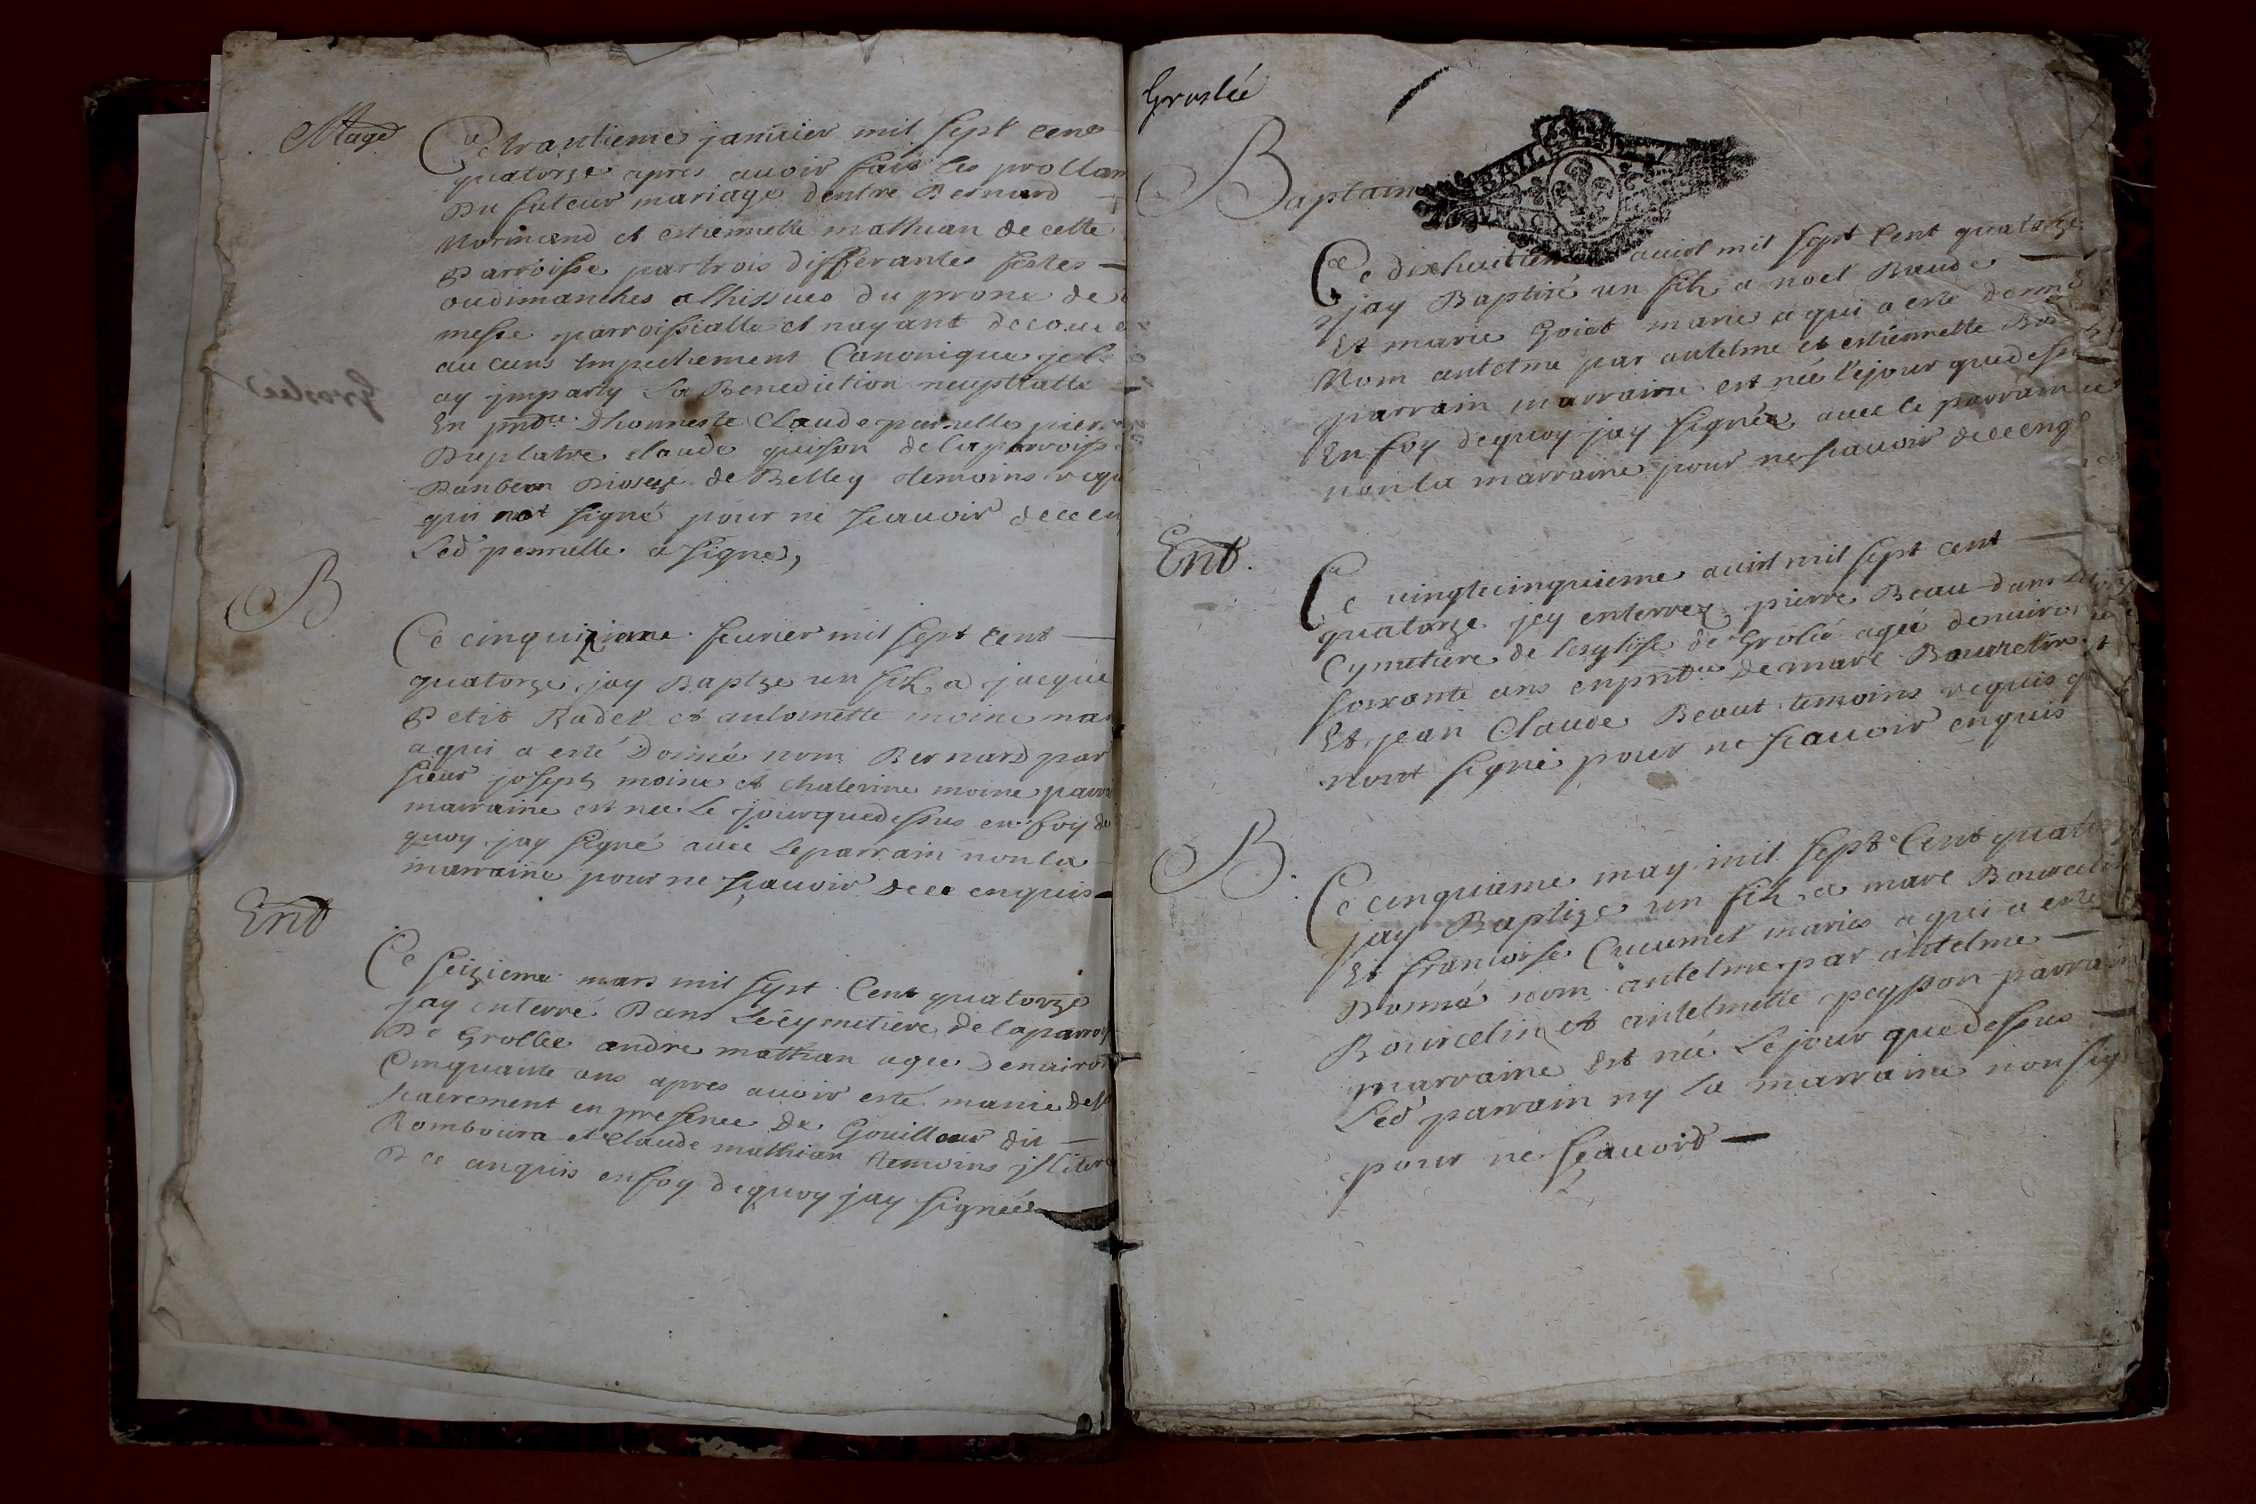 Mage
Ce trantieme januier mil sept cens
quatorze apres auoir fait les proclam
Du futeur mariage dentre Bernard
Normand et estiennette mathian de cette
Parroisse par trois differantes festes
ou dimanches a lhissues du prone de
messe parroissialle et nayant decouue
aucuns Impechement Canonique je le
ay jmparty La Benediction neuptialle
En pnce. Dhonneste Claude pernelle pier
Duplatre claude guison de la parroiss
Danbeon Diosese de Belley temoins requ
qui not signé pour ne scauoir de ce en
Led pernelle a signe,
B
Ce cinquizieme feurier mil sept cent
quatorze jay Baptze un fils a jacque
Petit Radet et antoinette moine mar
a qui a esté Donné nom Bernard par
sieur joseph moine et chaterine moine parr
marraine est nee Le jour que dessus en foy de
quoy jay signé auec Le parrain non la
marraine pour ne scauoir de ce enquis
Ent
Ce seizieme mars mil sept Cent quatorze
jay enterré Dans Le cymetiere de la parroi
De Grollee andre mathian agee Denairon
Cinquante ans apres auoir esté munie de S
sacrement en presence De Gouilloux dit
Romboura et Claude mathian temoins jlliteré
De ce anquis en foy de quoy jay signée
Groslée
Groslée
Baptain
Ce dixhuitieme auril mil sept Cent quatorze
jay Baptizé un fils a noel Baude
Et marie Goiet maries a qui a esté donné
Nom antelme par antelme et estiennette
parrain marraine est née le jour que dessus
En foy de quoy jay signée auec le parrain
non la marraine pour ne scauoir de ce enq
Ent.
Ce uingtecinquieme auril mil sept cent
quatorze jey enterrez pierre Beau dans le
Cymetiere de lesglise de Grolié ageé denuiron
soixante ans en pnce de marc Bourcelin
Et jean Claude Beaut temoins requis q
nont signé pour ne scauoir enquis
B.
Ce cinquieme may mil sept Cent quatorze
jay Baptize un fils a marc Bourcelin
Et francoise Cucumet maries a qui a esté
Donné nom antelme par antelme
Bourcelin et antelmette peysson parrain
marraine Est née Le jour que dessus
Led parrain ny la marraine non sig
pour ne scauoird